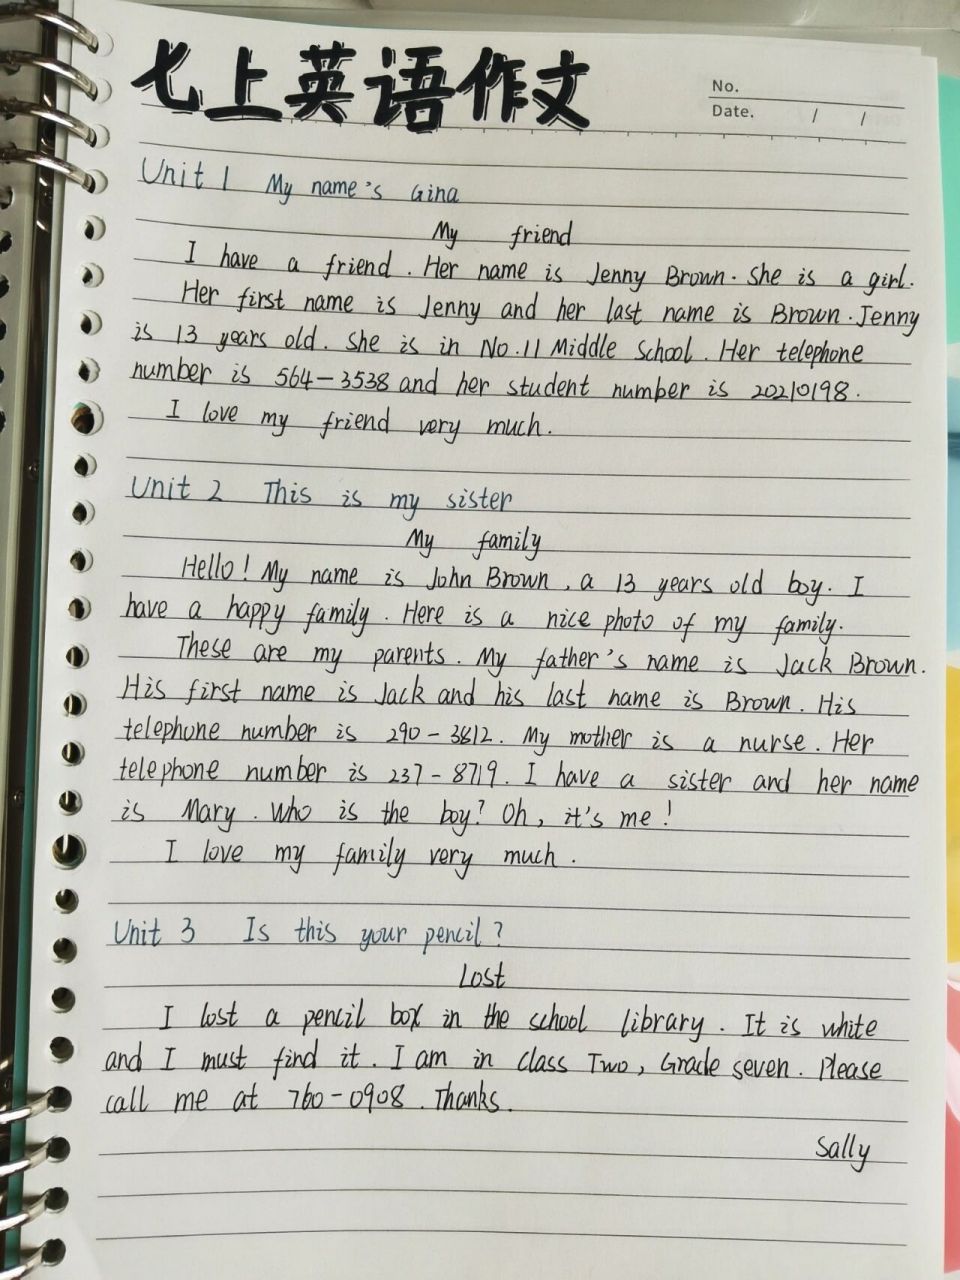 七上英语作文
No.
Date. / /
Unit 1 My name's Gina
My friend
I have a friend. Her name is Jenny Brown. She is a girl.
Her first name is Jenny and her last name is Brown. Jenny
is 13 years old. She is in No.11 Middle School. Her telephone
number is 564-3538 and her student number is 20210198.
I love my friend very much.
Unit 2 This is my sister
My family
Hello! My name is John Brown, a 13 years old boy. I
have a happy family. Here is a nice photo of my family.
These are my parents. My father's name is Jack Brown.
His first name is Jack and his last name is Brown. His
telephone number is 290-3612. My mother is a nurse. Her
telephone number is 237-8719. I have a sister and her name
is Mary. Who is the boy? Oh, it's me!
I love my family very much.
Unit 3 Is this your pencil?
Lost
I lost a pencil box in the school library. It is white
and I must find it. I am in Class Two, Grade seven. Please
call me at 760-0908. Thanks.
Sally